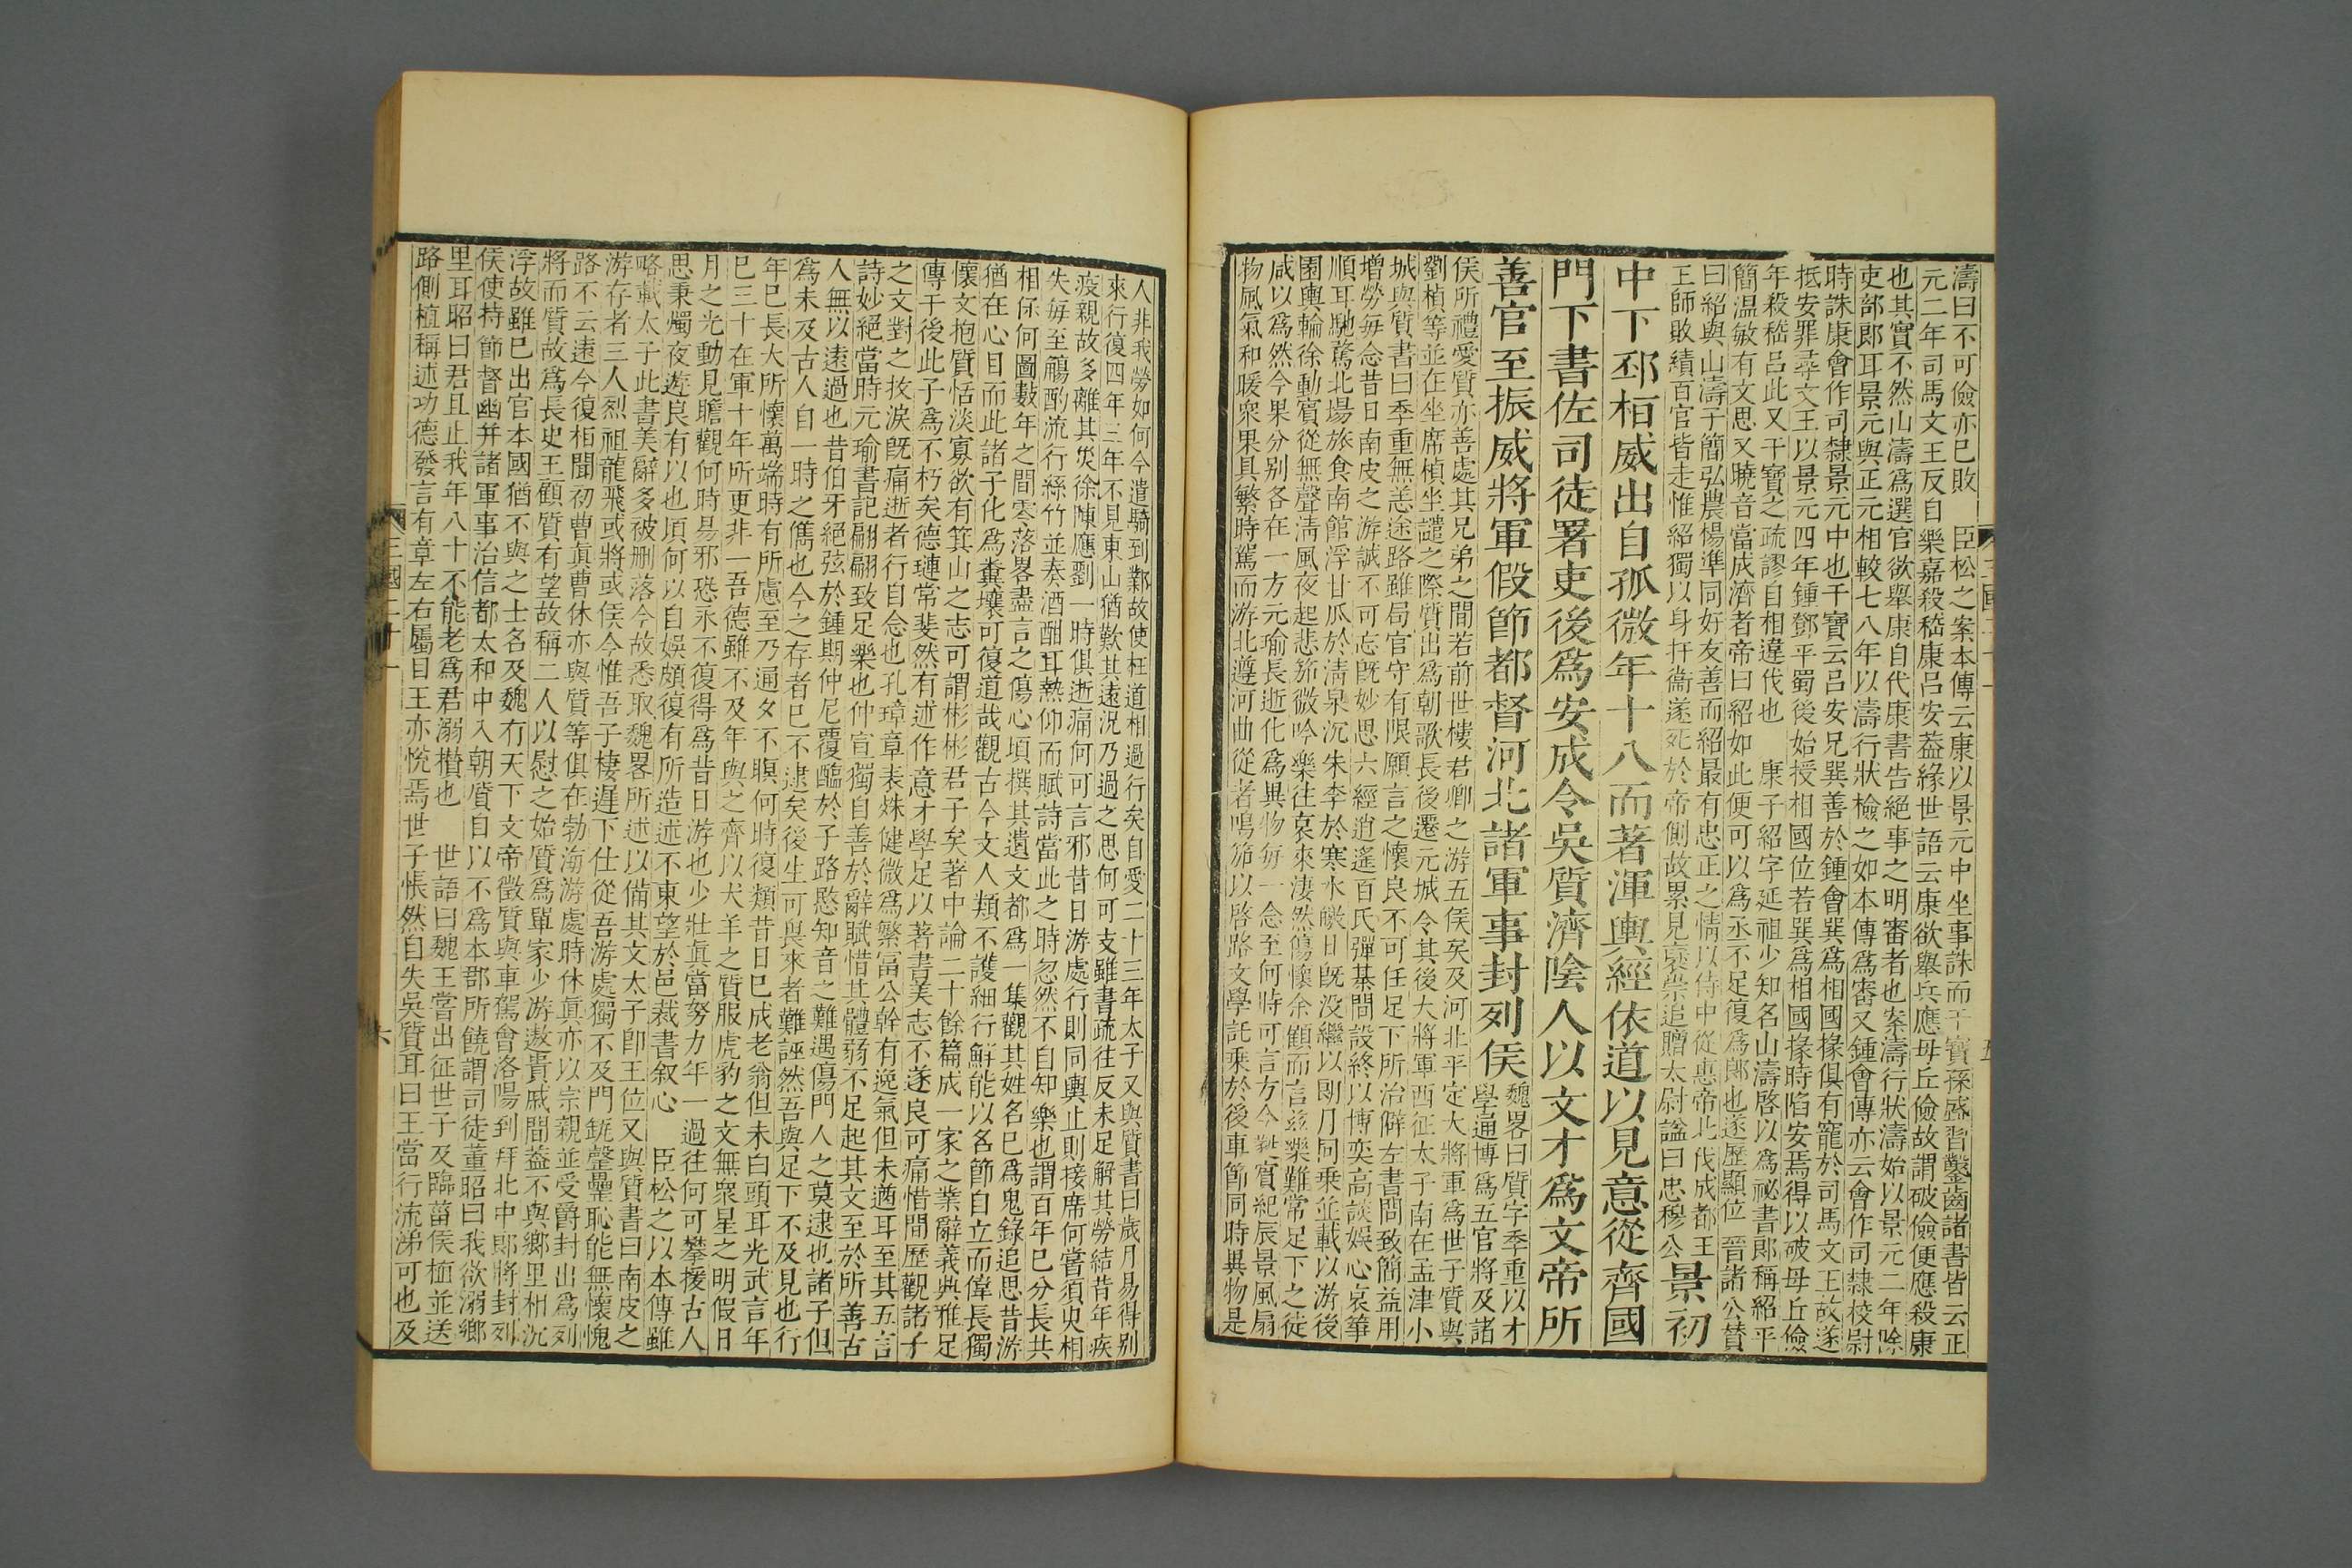 濤曰不可儉亦已敗　臣松之案本傳云康以景元中坐事誅而干寶孫盛習鑿齒諸書皆云正
元二年司馬文王反自樂嘉殺嵇康呂安葢緣世語云康欲舉兵應毋丘儉故謂破儉便應殺康
也其實不然山濤爲選官欲舉康自代康書告絕事之明審者也案濤行狀濤始以景元二年除
吏部郎耳景元與正元相較七八年以濤行狀檢之如本傳爲審又鍾會傳亦云會作司隸校尉
時誅康會作司隸景元中也干寶云呂安兄巽善於鍾會巽爲相國掾俱有寵於司馬文王故遂
抵安罪尋文王以景元四年鍾鄧平蜀後始授相國位若巽爲相國掾時陷安焉得以破毋丘儉
年殺嵇呂此又干寶之疏謬自相違伐也　康子紹字延祖少知名山濤啓以爲祕書郎稱紹平
簡温敏有文思又曉音當成濟者帝曰紹如此便可以爲丞不足復爲郎也遂歷顯位　晉諸公贊
曰紹與山濤子簡弘農楊準同好友善而紹最有忠正之情以侍中從惠帝北伐成都王
王師敗績百官皆走惟紹獨以身扞衞遂死於帝側故累見襃崇追贈太尉謚曰忠穆公景初
中下邳桓威出自孤微年十八而著渾輿經依道以見意從齊國
門下書佐司徒署吏後爲安成令吳質濟陰人以文才爲文帝所
善官至振威將軍假節都督河北諸軍事封列侯
魏畧曰質字季重以才
學通博爲五官將及諸
侯所禮愛質亦善處其兄弟之間若前世樓君卿之游五侯矣及河北平定大將軍爲世子質與
劉楨等並在坐席楨坐譴之際質出爲朝歌長後遷元城令其後大將軍西征太子南在孟津小
城與質書曰季重無恙途路雖局官守有限願言之懷良不可任足下所治僻左書問致簡益用
增勞每念昔日南皮之游誠不可忘旣妙思六經逍遙百氏彈棊間設終以博奕高談娛心哀箏
順耳馳騖北場旅食南館浮甘瓜於淸泉沉朱李於寒水皦日旣没繼以朗月同乗並載以游後
園輿輪徐動賓從無聲淸風夜起悲笳微吟樂往哀來淒然傷懷余顧而言玆樂難常足下之徒
咸以爲然今果分别各在一方元瑜長逝化爲異物每一念至何時可言方今蕤賓紀辰景風扇
物風氣和暖衆果具繁時駕而游北遵河曲從者鳴笳以啓路文學託乘於後車節同時異物是
人非我勞如何今遣騎到鄴故使枉道相過行矣自愛二十三年太子又與質書曰歲月易得别
來行復四年三年不見東山猶歎其遠況乃過之思何可支雖書疏往反未足解其勞結昔年疾
疫親故多離其災徐陳應劉一時俱逝痛何可言邪昔日游處行則同輿止則接席何嘗須臾相
失每至觴酌流行絲竹並奏酒酣耳熱仰而賦詩當此之時忽然不自知樂也謂百年已分長共
相保何圖數年之間零落畧盡言之傷心頃撰其遺文都爲一集觀其姓名已爲鬼錄追思昔游
猶在心目而此諸子化爲糞壤可復道哉觀古今文人類不護細行鮮能以名節自立而偉長獨
懷文抱質恬淡寡欲有箕山之志可謂彬彬君子矣著中論二十餘篇成一家之業辭義典雅足
傳于後此子爲不朽矣德璉常斐然有述作意才學足以著書美志不遂良可痛惜間歷觀諸子
之文對之抆淚旣痛逝者行自念也孔璋章表殊健微爲繁富公幹有逸氣但未遒耳至其五言
詩妙絕當時元瑜書記翩翩致足樂也仲宣獨自善於辭賦惜其體弱不足起其文至於所善古
人無以遠過也昔伯牙絕弦於鍾期仲尼覆醢於子路愍知音之難遇傷門人之莫逮也諸子但
爲未及古人自一時之儁也今之存者已不逮矣後生可畏來者難誣然吾與足下不及見也行
年已長大所懷萬端時有所慮至乃通夕不瞑何時復類昔日已成老翁但未白頭耳光武言年
已三十在軍十年所更非一吾德雖不及年與之齊以犬羊之質服虎豹之文無衆星之明假日
月之光動見瞻觀何時易邪恐永不復得爲昔日游也少壯眞當努力年一過往何可攀援古人
思秉燭夜遊良有以也頃何以自娛頗復有所造述不東望於邑裁書叙心　臣松之以本傳雖
略載太子此書美辭多被刪落今故悉取魏畧所述以備其文太子卽王位又與質書曰南皮之
游存者三人烈祖龍飛或將或侯今惟吾子棲遲下仕從吾游處獨不及門缾罄罍恥能無懷愧
路不云遠今復相聞初曹眞曹休亦與質等俱在勃海游處時休眞亦以宗親並受爵封出爲列
將而質故爲長史王顧質有望故稱二人以慰之始質爲單家少游遨貴戚間葢不與鄉里相沉
浮故雖已出官本國猶不與之士名及魏有天下文帝徵質與車駕會洛陽到拜北中郎將封列
侯使持節督幽并諸軍事治信都太和中入朝質自以不爲本郡所饒謂司徒董昭曰我欲溺鄉
里耳昭曰君且止我年八十不能老爲君溺攢也　世語曰魏王嘗出征世子及臨菑侯植並送
路側植稱述功德發言有章左右屬目王亦悅焉世子悵然自失吳質耳曰王當行流涕可也及
三國二十一
六